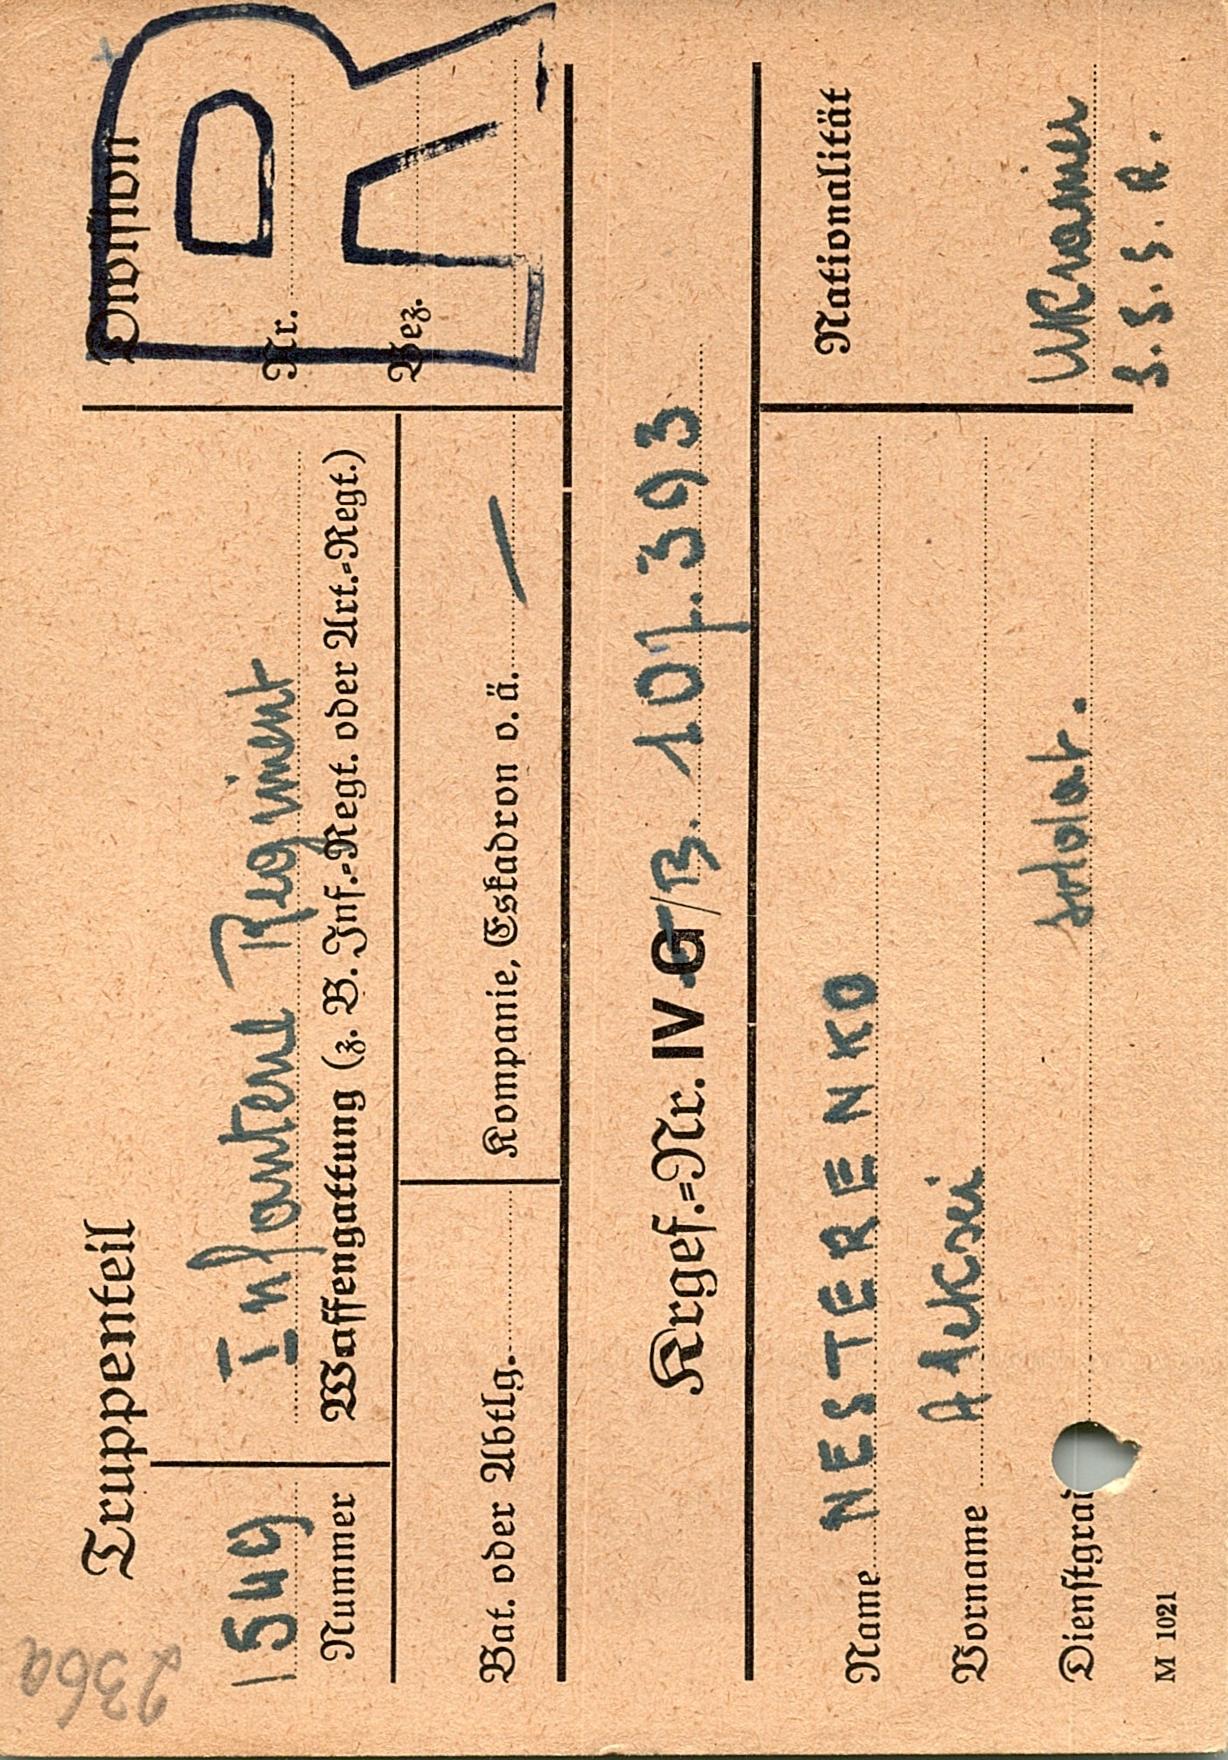 236a
Truppenteil
Division
1549
Infanterie Regiment
Nr.
Nummer
Waffengattung (z. B. Inf.-Regt. oder Art.-Regt.)
Bez.
R
Bat. oder Abtlg.
Kompanie, Eskadron o. ä. —
Krgef.-Nr. IV G/B. 107.393
Name NESTERENKO
Nationalität
Vorname Aleksei
Dienstgrad soldat.
UKrainer
S.S.S.R.
M 1021